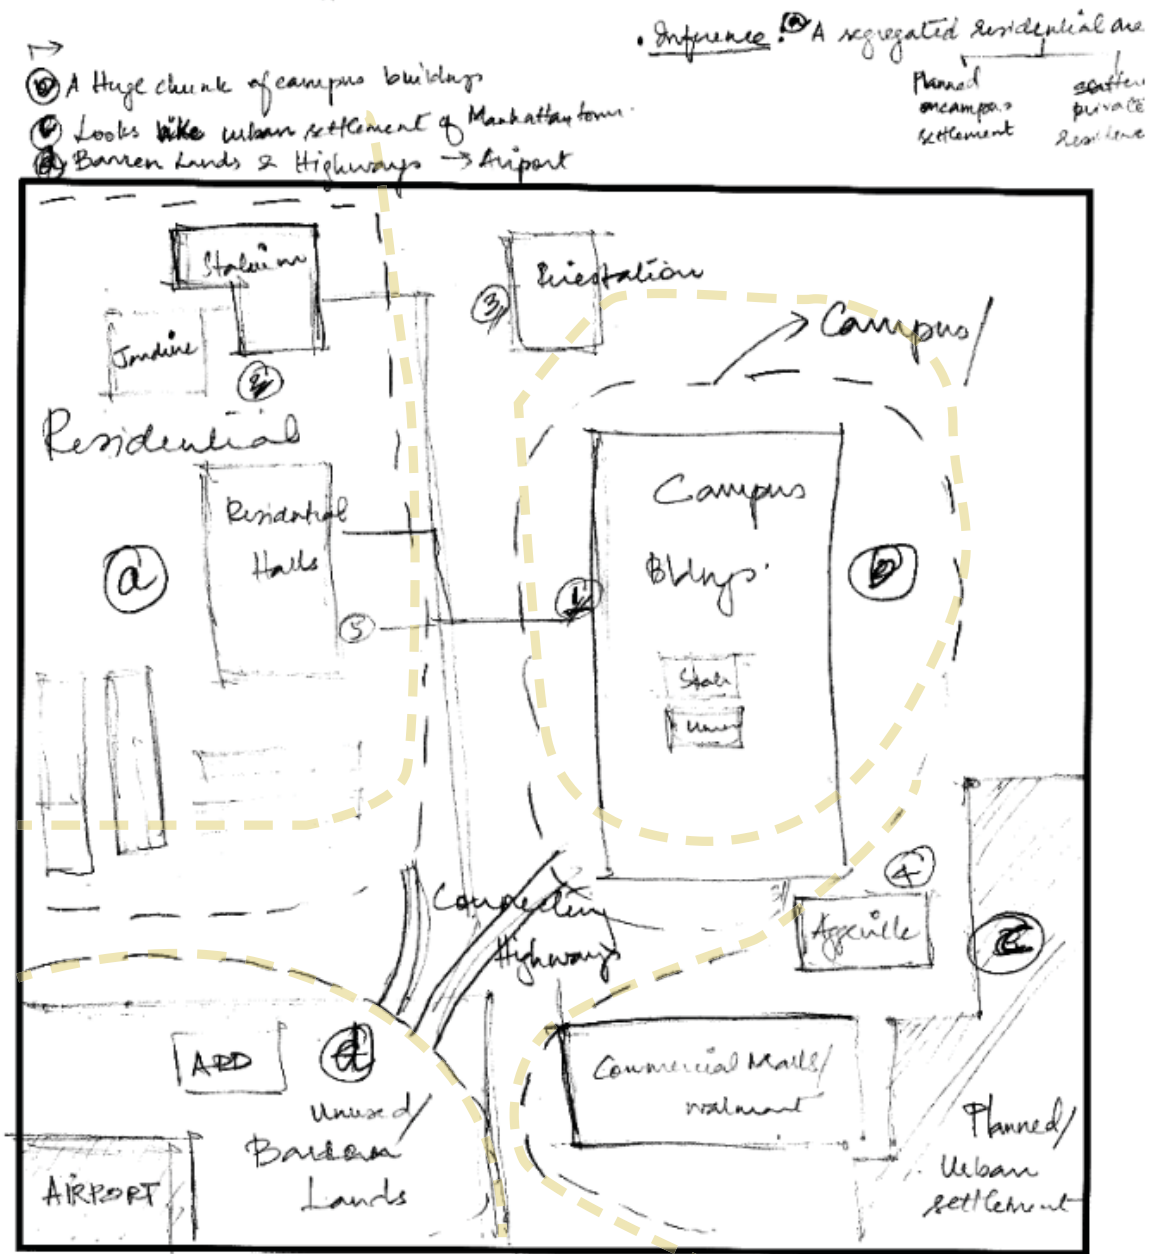 • Inference : ⓐ A segregated residential are
Planned
oncampus
settlement
scatter
private
Residence
ⓑ A Huge chunk of campus buildings
ⓒ Looks like urban settlement of Manhattan town.
ⓓ Barren Lands & Highways → Airport
Stadium
Jardine
2
Residential
Residential
Halls
a
5
3
Campus/
Campus
Bldngs.
1
b
Union
4
Aggeville
c
Connecting
Highways
ARD
d
Unused/
Barren
Lands
AIRPORT
Commercial Malls/
Walmart
Planned/
Urban
settlement